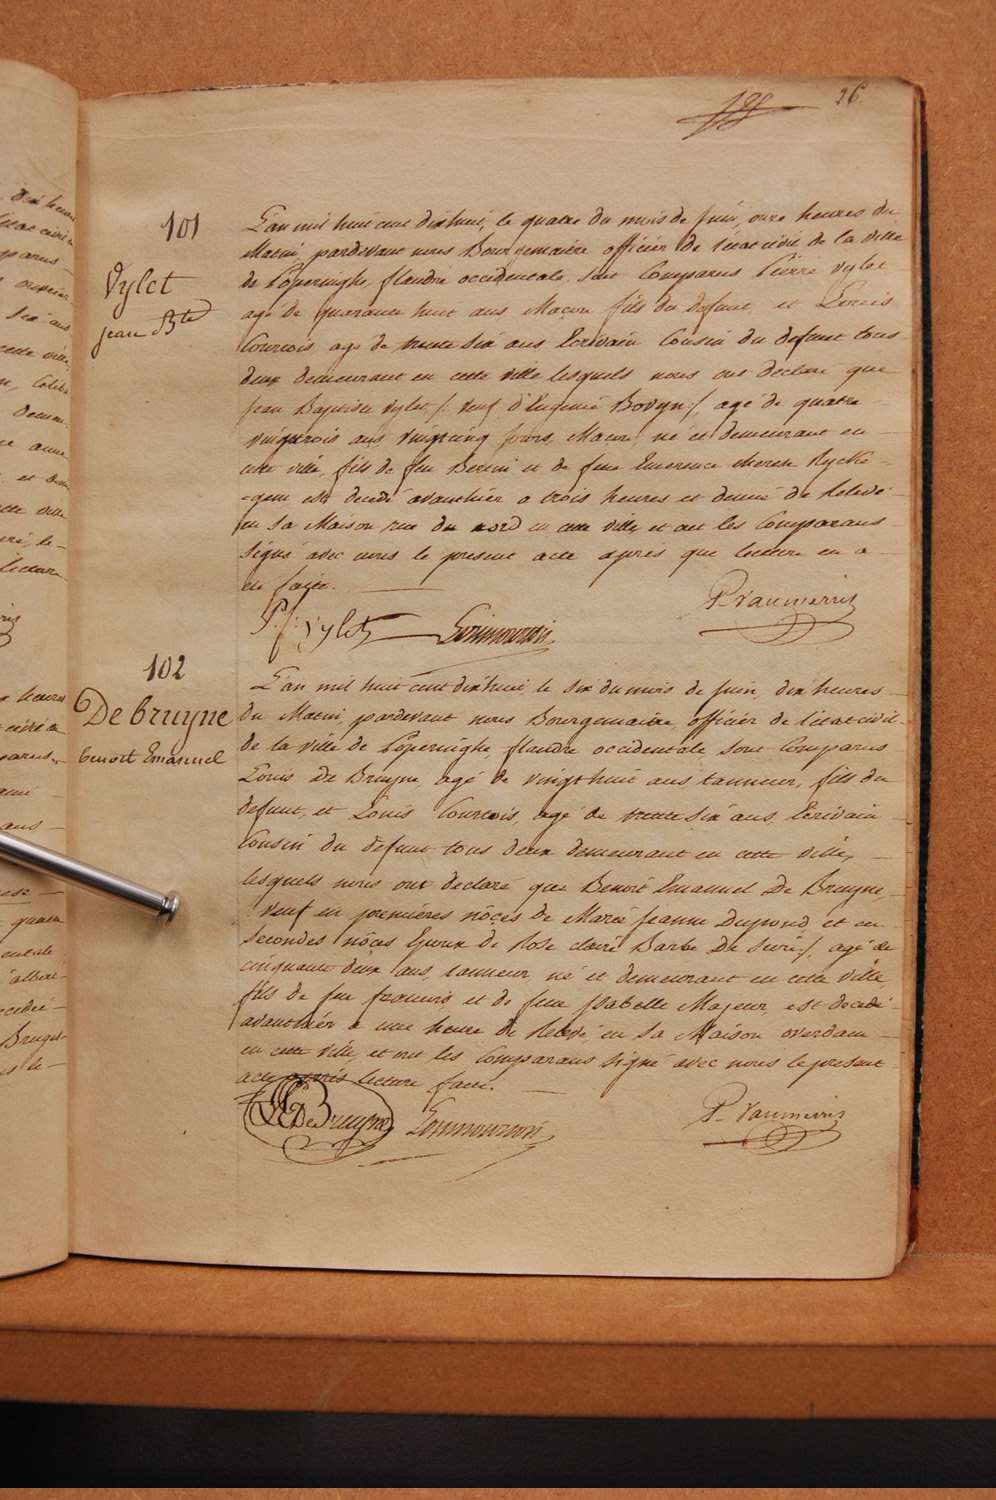 26
101
Vylet
jean Bte
L'an mil huit cent dixhuit, le quatre du mois de Juin, onze heures du
Matin, pardevant nous Bourgemaitre officier de l'état civil de la ville
de Poperinghe, flandre occidentale, sont Comparus Pierre Vylet
agé de quarante huit ans Maçon fils du defunt, et Louis
Courtois agé de trente six ans Ecrivain Cousin du defunt tous
deux demeurant en cette ville lesquels nous ont declaré que
Jean Baptiste Vylet /: veuf d'Eugenie Bovyn :/ agé de quatre
vingt trois ans vingtcinq jours, Macon, né et demeurant en
cette ville, fils de feu Bertin et de feue Emerence therese Rycke-
-gem est decedé avanthier a trois heures et demie de Relevé
en sa Maison rue du nord en cette ville, et ont les Comparans
signé avec nous le present acte après que lecture en a
eté faite.
P. J. Vylet
P. Vanmerris
102
De bruyne
benoit Emanuel
L'an mil huit cent dixhuit, le six du mois de Juin, dix heures
du Matin, pardevant nous Bourgemaitre, officier de l'état civil
de la ville de Poperinghe, flandre occidentale, sont Comparus
Louis De Bruyne, agé de vingthuit ans tanneur, fils du
defunt, et Louis Courtois, agé de trente six ans, Ecrivain
Cousin du defunt tous deux demeurant en cette ville,
lesquels nous ont declaré que Benoit Emanuel De Bruyne,
/: veuf en premières nôces de Marie Jeanne Dupond, et en
secondes nôces Epoux de Rose claire Barbe De :/ agé de
cinquante deux ans, tanneur, né et demeurant en cette ville
fils de feu francois et de feue Isabelle Majeur, est decedé
avanthier a une heure de Relevé en sa Maison overdam
en cette ville, et ont les Comparans signé avec nous le present
acte après lecture faite.
L De Bruyne
P. Vanmerris